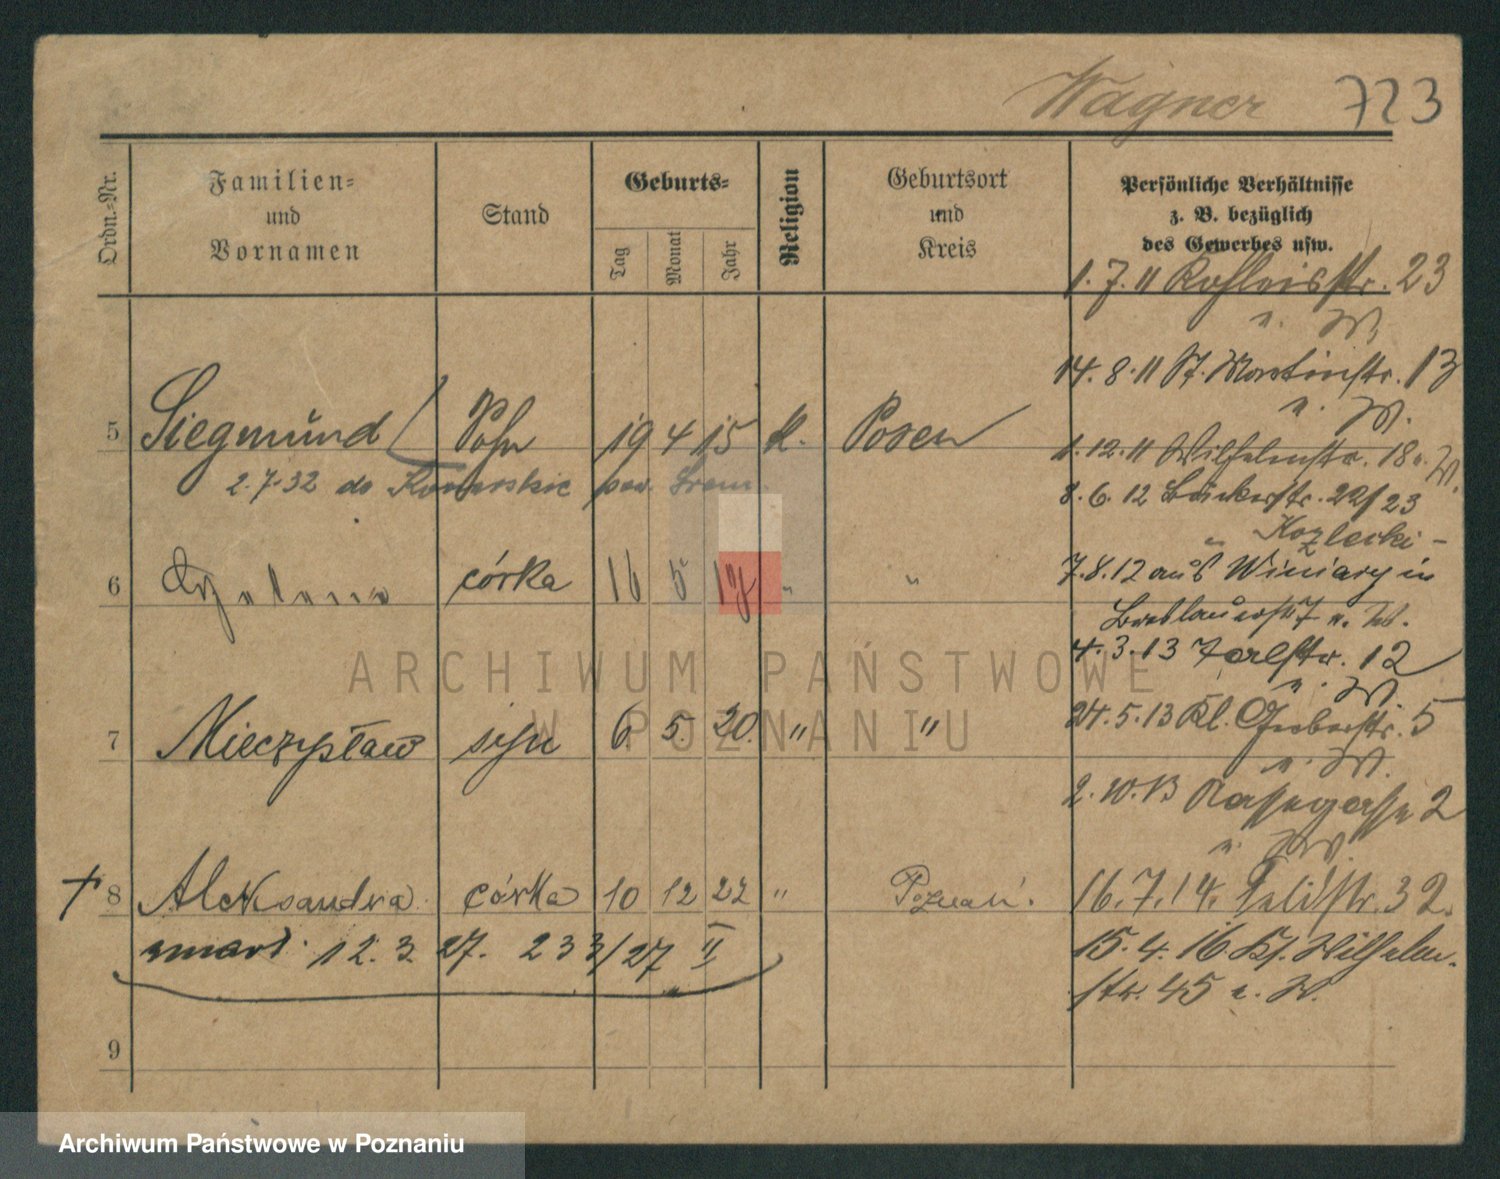 Wagner 723
Ordn.-Nr.
Familien=
und
Vornamen
Stand
Geburts=
Tag
Monat
Jahr
Religion
Geburtsort
und
Kreis
Persönliche Verhältnisse
z. B. bezüglich
des Gewerbes usw.
5 Siegmund Sohn 19 4 15 k. Posen
2.7.32 do pow. Śrem
6 córka 16 5 17 " "
7 Mieczysław syn 6. 5. 20. " "
8 Aleksandra córka 10 12 22 " Poznań.
zmarł. 12. 3. 27. 233/27 II
9
1.7.11 23
u. W.
14.8.11 St. Martinstr. 13
u. W.
1.12.11 Wilhelmstr. 18 u. W.
8.6.12 Bäckerstr. 22/23
7.8.12 aus Winiary in
Breslauerstr. 7 u. W.
4.3.13 12
u. W.
24.5.13 Kl. Gerberstr. 5
u. W.
2.10.13 2
u. W.
16.7.14. Feldstr. 32.
15.4.16 Wilhelm-
str. 45 u. W.
ARCHIWUM PAŃSTWOWE
W POZNANIU
Archiwum Państwowe w Poznaniu